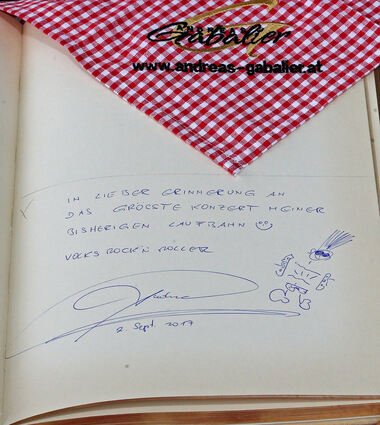 Gabalier
www.andreas-gabalier.at
IN LIEBER ERINNERUNG AN
DAS GRÖSSTE KONZERT MEINER
BISHERIGEN LAUFBAHN
VOLKS ROCK'N ROLLER
2. Sept. 2017